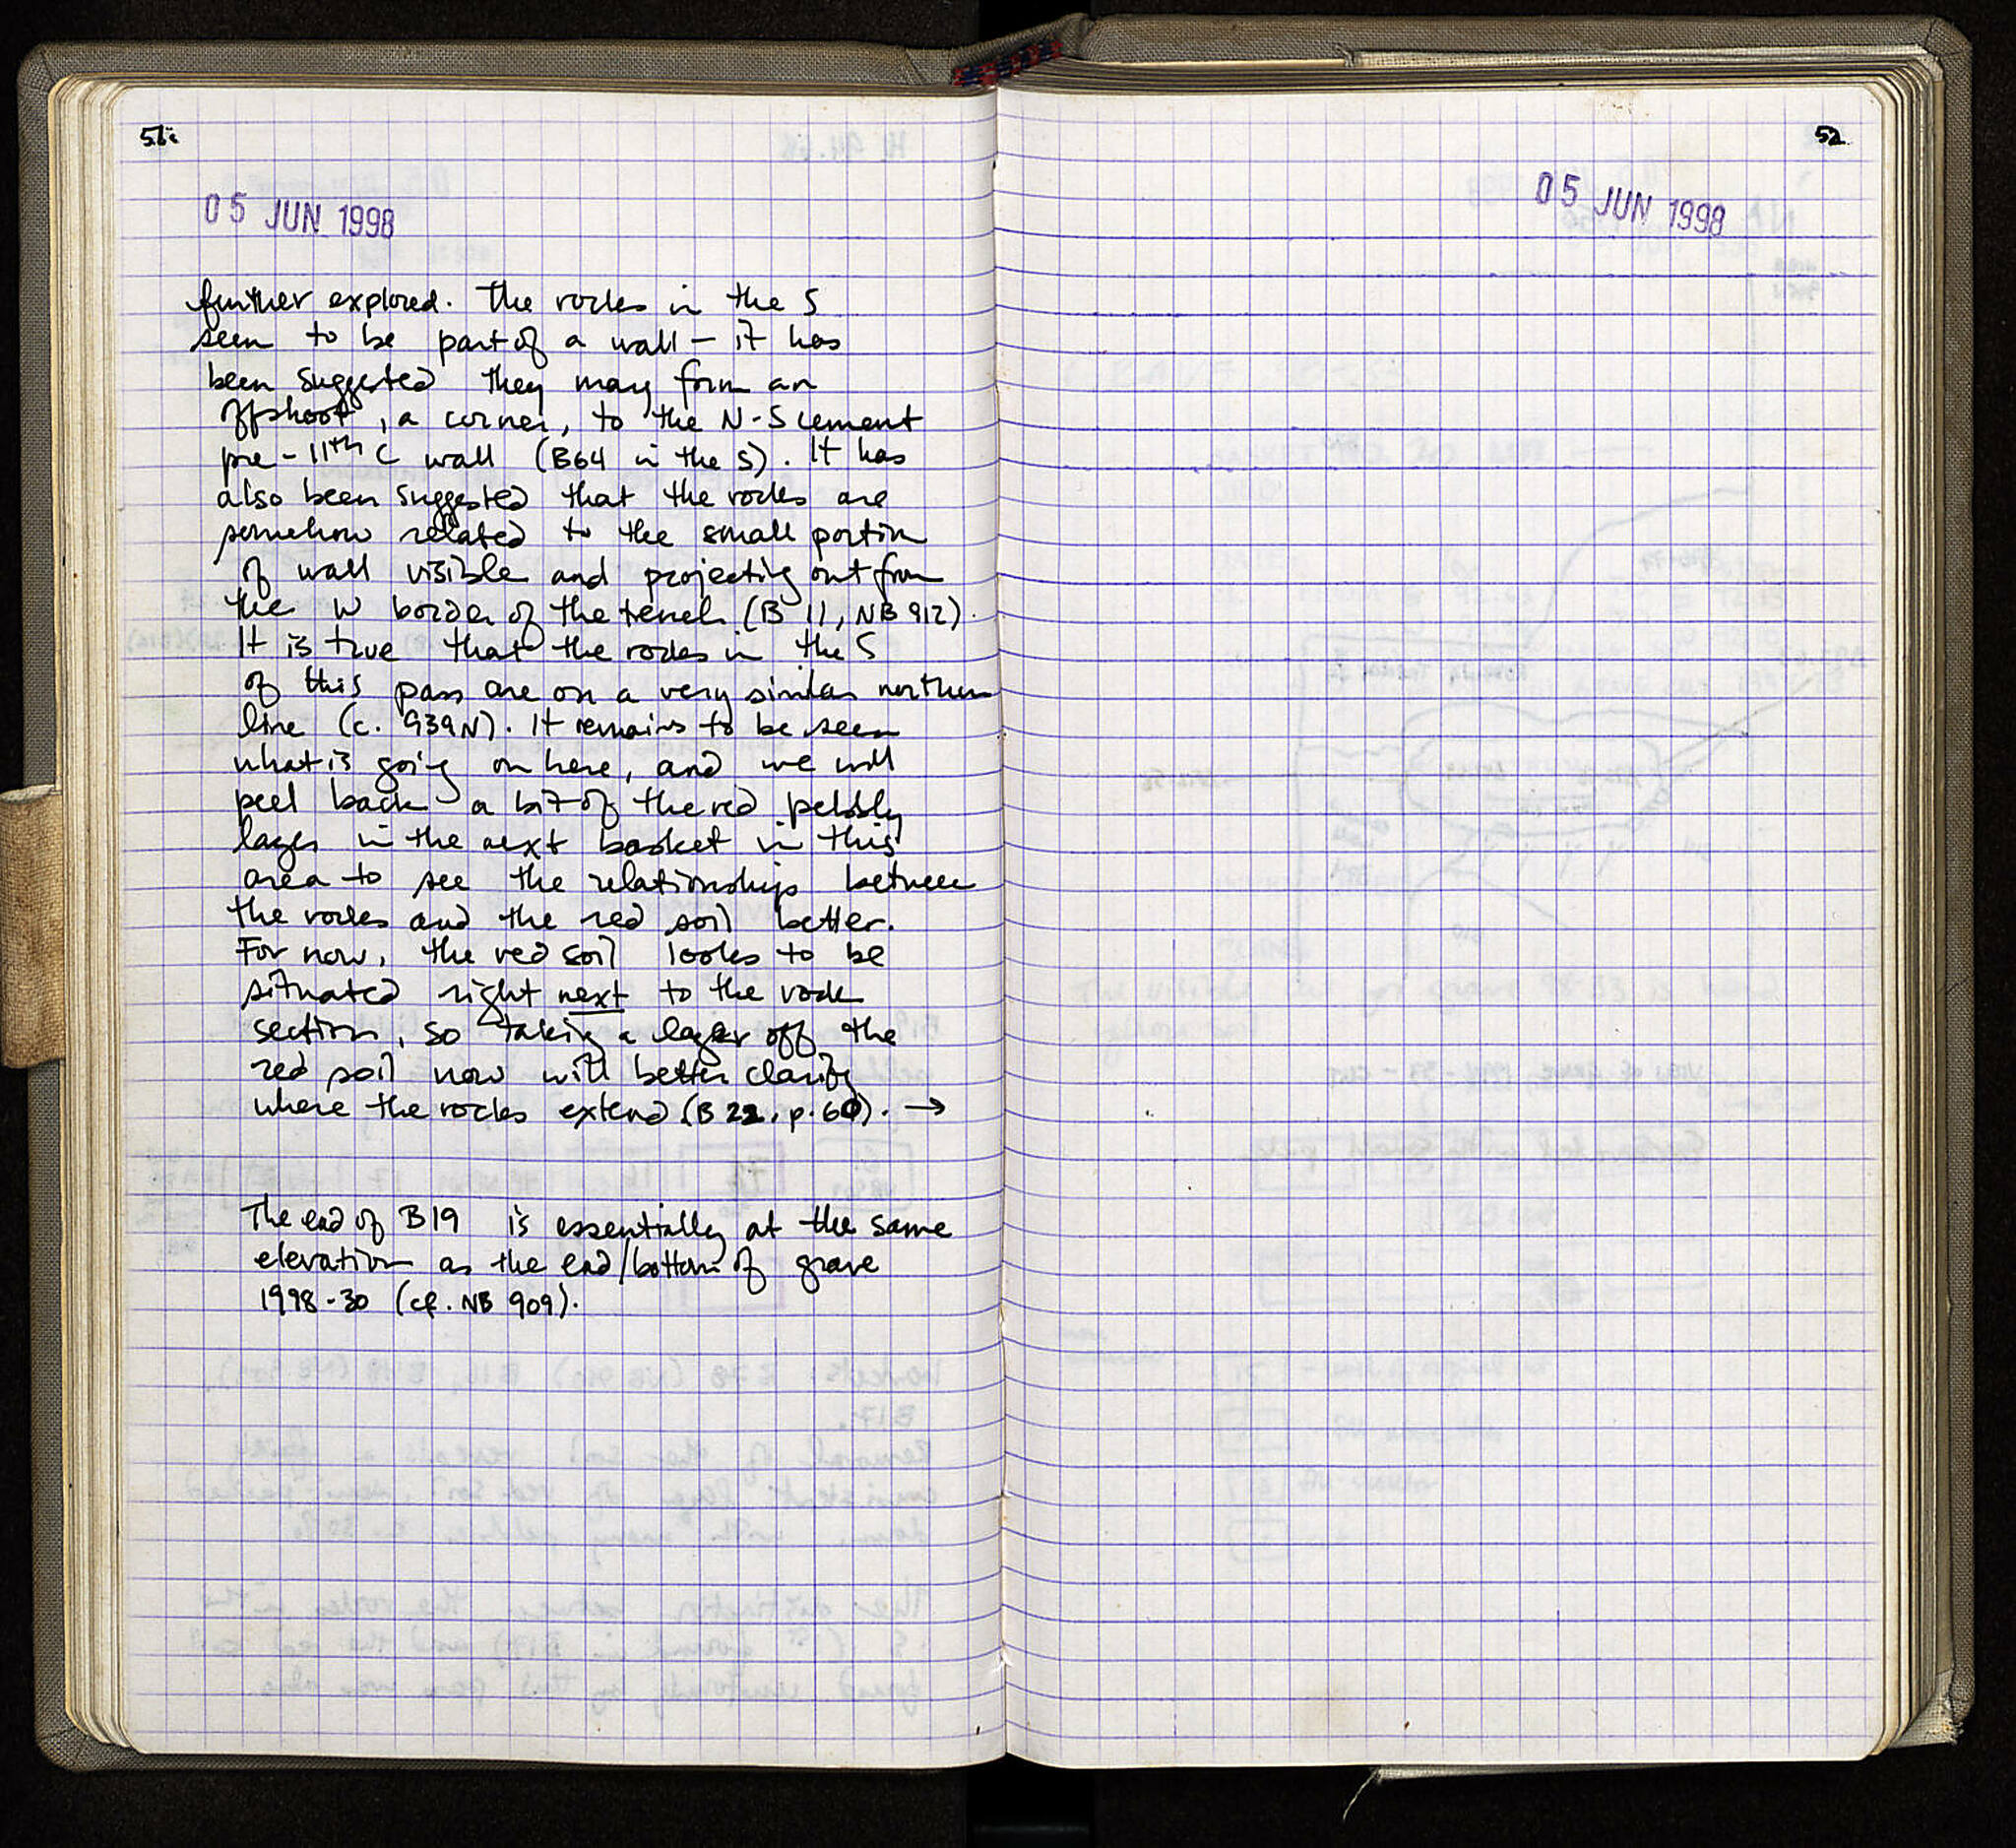 05 JUN 1998
further explored. The rocks in the S
seem to be part of a wall – it has
been suggested they may form an
offshoot, a corner, to the N-S cement
pre-11th C wall (B64 in the S). It has
also been suggested that the rocks are
somehow related to the small portion
of wall visible and projecting out from
the W border of the trench (B 11, NB 912).
It is true that the rocks in the S
of this pass are on a very similar northern
line (c. 939N). It remains to be seen
what is going on here, and we will
peel back a bit of the red pebbly
layer in the next basket in this
area to see the relationship between
the rocks and the red soil better.
For now, the red soil looks to be
situated right next to the rock
section, so taking a layer off the
red soil now will better clarify
where the rocks extend (B 22, p. 60). →
The end of B19 is essentially at the same
elevation as the end/bottom of grave
1998-30 (cf. NB 909).
52
05 JUN 1998